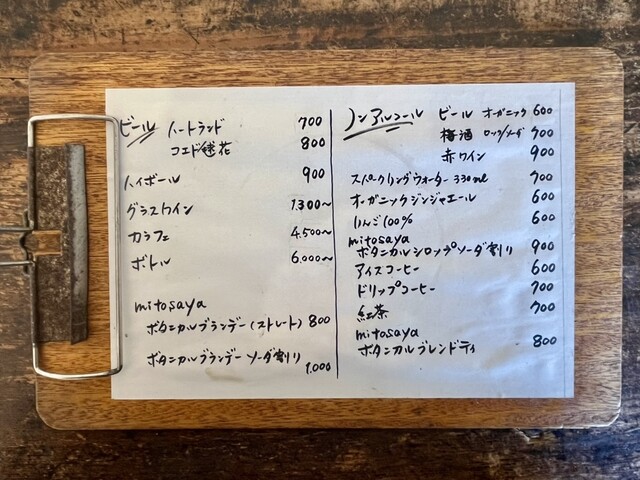 ビール ハートランド 700
コエド 花 800
ハイボール 900
グラスワイン 1.300〜
カラフェ 4.500〜
ボトル 6.000〜
mitosaya
ボタニカルブランデー(ストレート) 800
ボタニカルブランデー ソーダ割り 1.000
ノンアルコール ビール オーガニック 600
梅酒 ロック/ソーダ 700
赤ワイン 900
スパークリングウォーター 330ml 700
オーガニックジンジャエール 600
りんご100% 600
mitosaya
ボタニカルシロップソーダ割り 900
アイスコーヒー 600
ドリップコーヒー 700
紅茶 700
mitosaya
ボタニカルブレンドティ 800